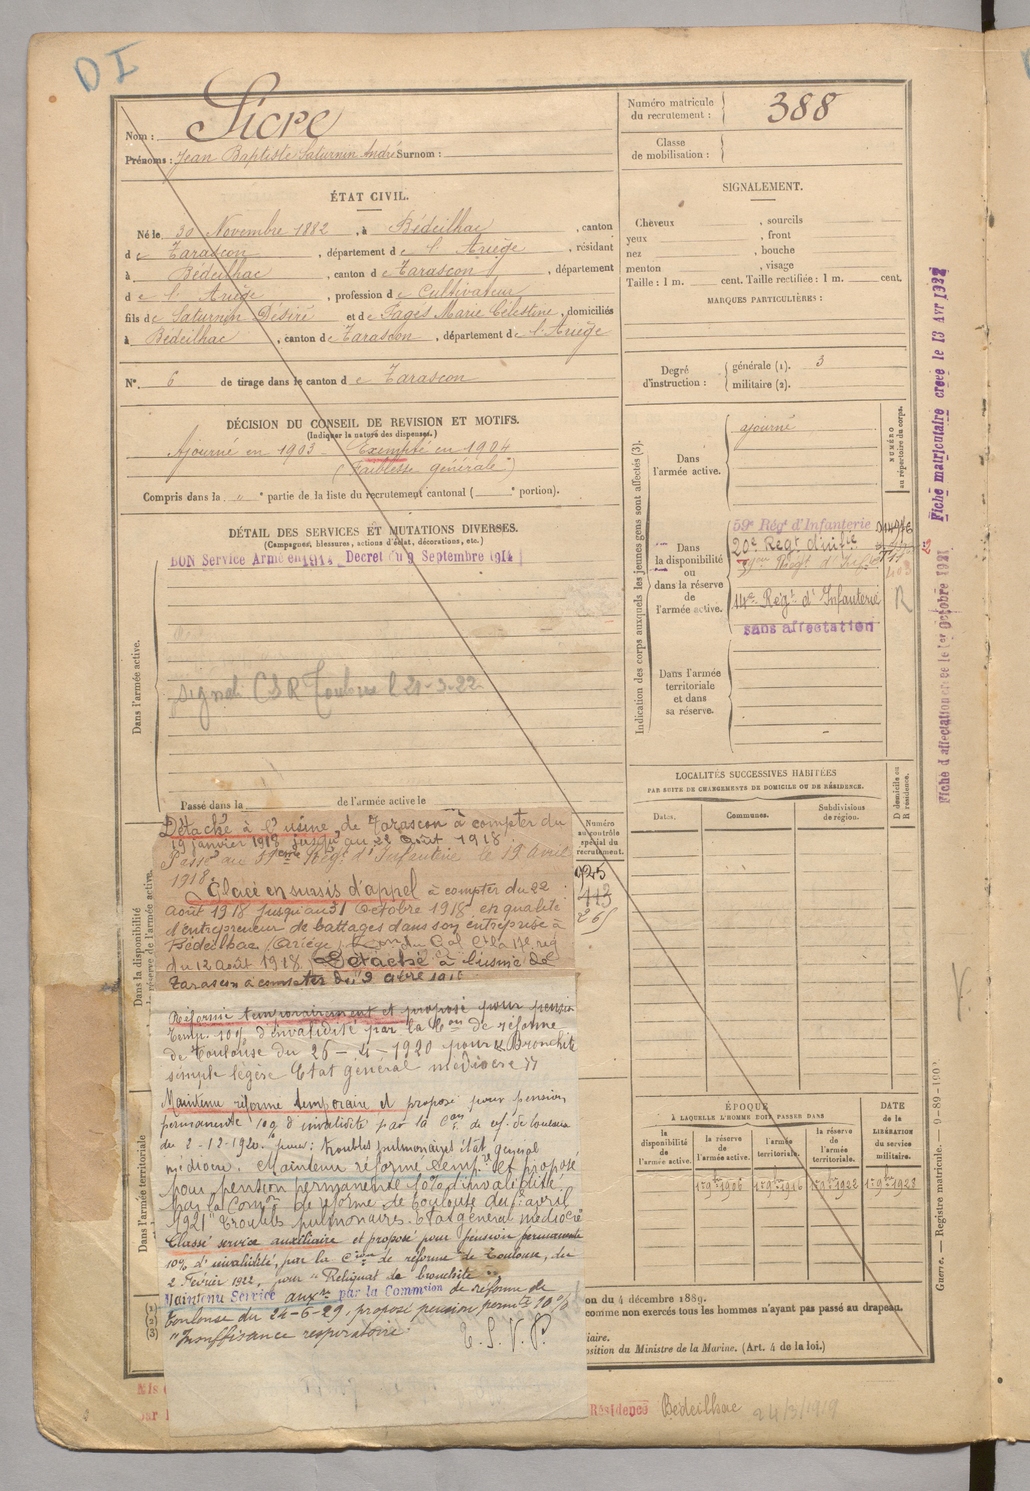 DI
Nom : Sicre
Prénoms : Jean Baptiste Saturnin André Surnom :
Numéro matricule du recrutement : 388
Classe de mobilisation :
ÉTAT CIVIL.
Né le 30 Novembre 1882, à Bédeilhac, canton
de Tarascon, département de l'Ariège, résidant
à Bédeilhac, canton de Tarascon, département
de l'Ariège, profession de Cultivateur
fils de Saturnin Désiré et de Fagès Marie Célestine, domiciliés
à Bédeilhac, canton de Tarascon, département de l'Ariège
N° 6 de tirage dans le canton de Tarascon
SIGNALEMENT.
Cheveux , sourcils
yeux , front
nez , bouche
menton , visage
Taille : 1 m. cent. Taille rectifiée : 1 m. cent.
MARQUES PARTICULIÈRES :
Degré d'instruction : générale (1). 3
militaire (2).
DÉCISION DU CONSEIL DE REVISION ET MOTIFS.
(Indiquer la nature des dispenses.)
Ajourné en 1903. Exempté en 1904
(Faiblesse générale)
Compris dans la e partie de la liste du recrutement cantonal ( e portion).
DÉTAIL DES SERVICES ET MUTATIONS DIVERSES.
(Campagnes, blessures, actions d'éclat, décorations, etc.)
BON Service Armé en 1914 Decret du 9 Septembre 1914
Dans l'armée active.
signé CSR Toulouse 21-3-22
Passé dans la de l'armée active le
Indication des corps auxquels les jeunes gens sont affectés (3).
NUMÉRO au répertoire du corps.
Dans l'armée active.
ajourné
Dans la disponibilité ou dans la réserve de l'armée active.
59e Rég d'Infanterie
20e Regt d'infie
14e Régt d'Infanterie
R
sans affectation
Dans l'armée territoriale et dans sa réserve.
LOCALITÉS SUCCESSIVES HABITÉES
PAR SUITE DE CHANGEMENTS DE DOMICILE OU DE RÉSIDENCE.
Dates. Communes. Subdivisions de région. D domicile ou R résidence.
Fiche matriculaire créée le 13 Avr 1922
Fiche d'affectation créée le 1er Octobre 1921
Détaché à l'usine de Tarascon à compter du
19 janvier 1918 jusqu'au 22 Août 1918
Passé au Régt d'Infanterie le 19 Avril
1918.
Placé en sursis d'appel à compter du 22
Août 1918 jusqu'au 31 Octobre 1918 en qualité
d'entrepreneur de battages dans son entreprise à
Bédeilhac (Ariège)
du 12 Août 1918. Détaché à l'usine de
Tarascon à compter du
Numéro au contrôle spécial du recrutement.
925
113
265
Dans la disponibilité
réserve de l'armée active.
Réformé temporairement et proposé pour pension
Temp. 10% d'invalidité par la Con de réforme
de Toulouse du 26-4-1920 pour Bronchite
simple légère Etat général médiocre
Maintenu réforme temporaire et proposé pour pension
permanente 10% d'invalidité par la Con de réf. de Toulouse
du 2-12-1920. pour : troubles pulmonaires état général
médiocre. Maintenu réforme temp. et proposé
pour pension permanente 10% d'invalidité
par la Comon de réforme de Toulouse du avril
1921 "Troubles pulmonaires. Etat général médiocre"
Classé service auxiliaire et proposé pour pension permanente
10% d'invalidité, par la Cion de réforme de Toulouse, du
2 Février 1922, pour "Reliquat de bronchite"
Maintenu Service auxre par la Commsion de réforme de
Toulouse du 24-6-29, proposé pension permte 10%
"Insuffisance respiratoire"
T. S. V. P.
Dans l'armée territoriale
ÉPOQUE
À LAQUELLE L'HOMME DOIT PASSER DANS
DATE de la LIBÉRATION du service militaire.
la disponibilité de l'armée active.
la réserve de l'armée active.
l'armée territoriale.
la réserve de l'armée territoriale.
1er 9bre 1906 1er 9bre 1916 1er 9bre 1922 1er 9bre 1928
on du 4 décembre 1889.
comme non exercés tous les hommes n'ayant pas passé au drapeau.
iaire.
osition du Ministre de la Marine. (Art. 4 de la loi.)
Guerre. — Registre matricule. — 9-89-190
Résidence Bédeilhac 24/3/1919